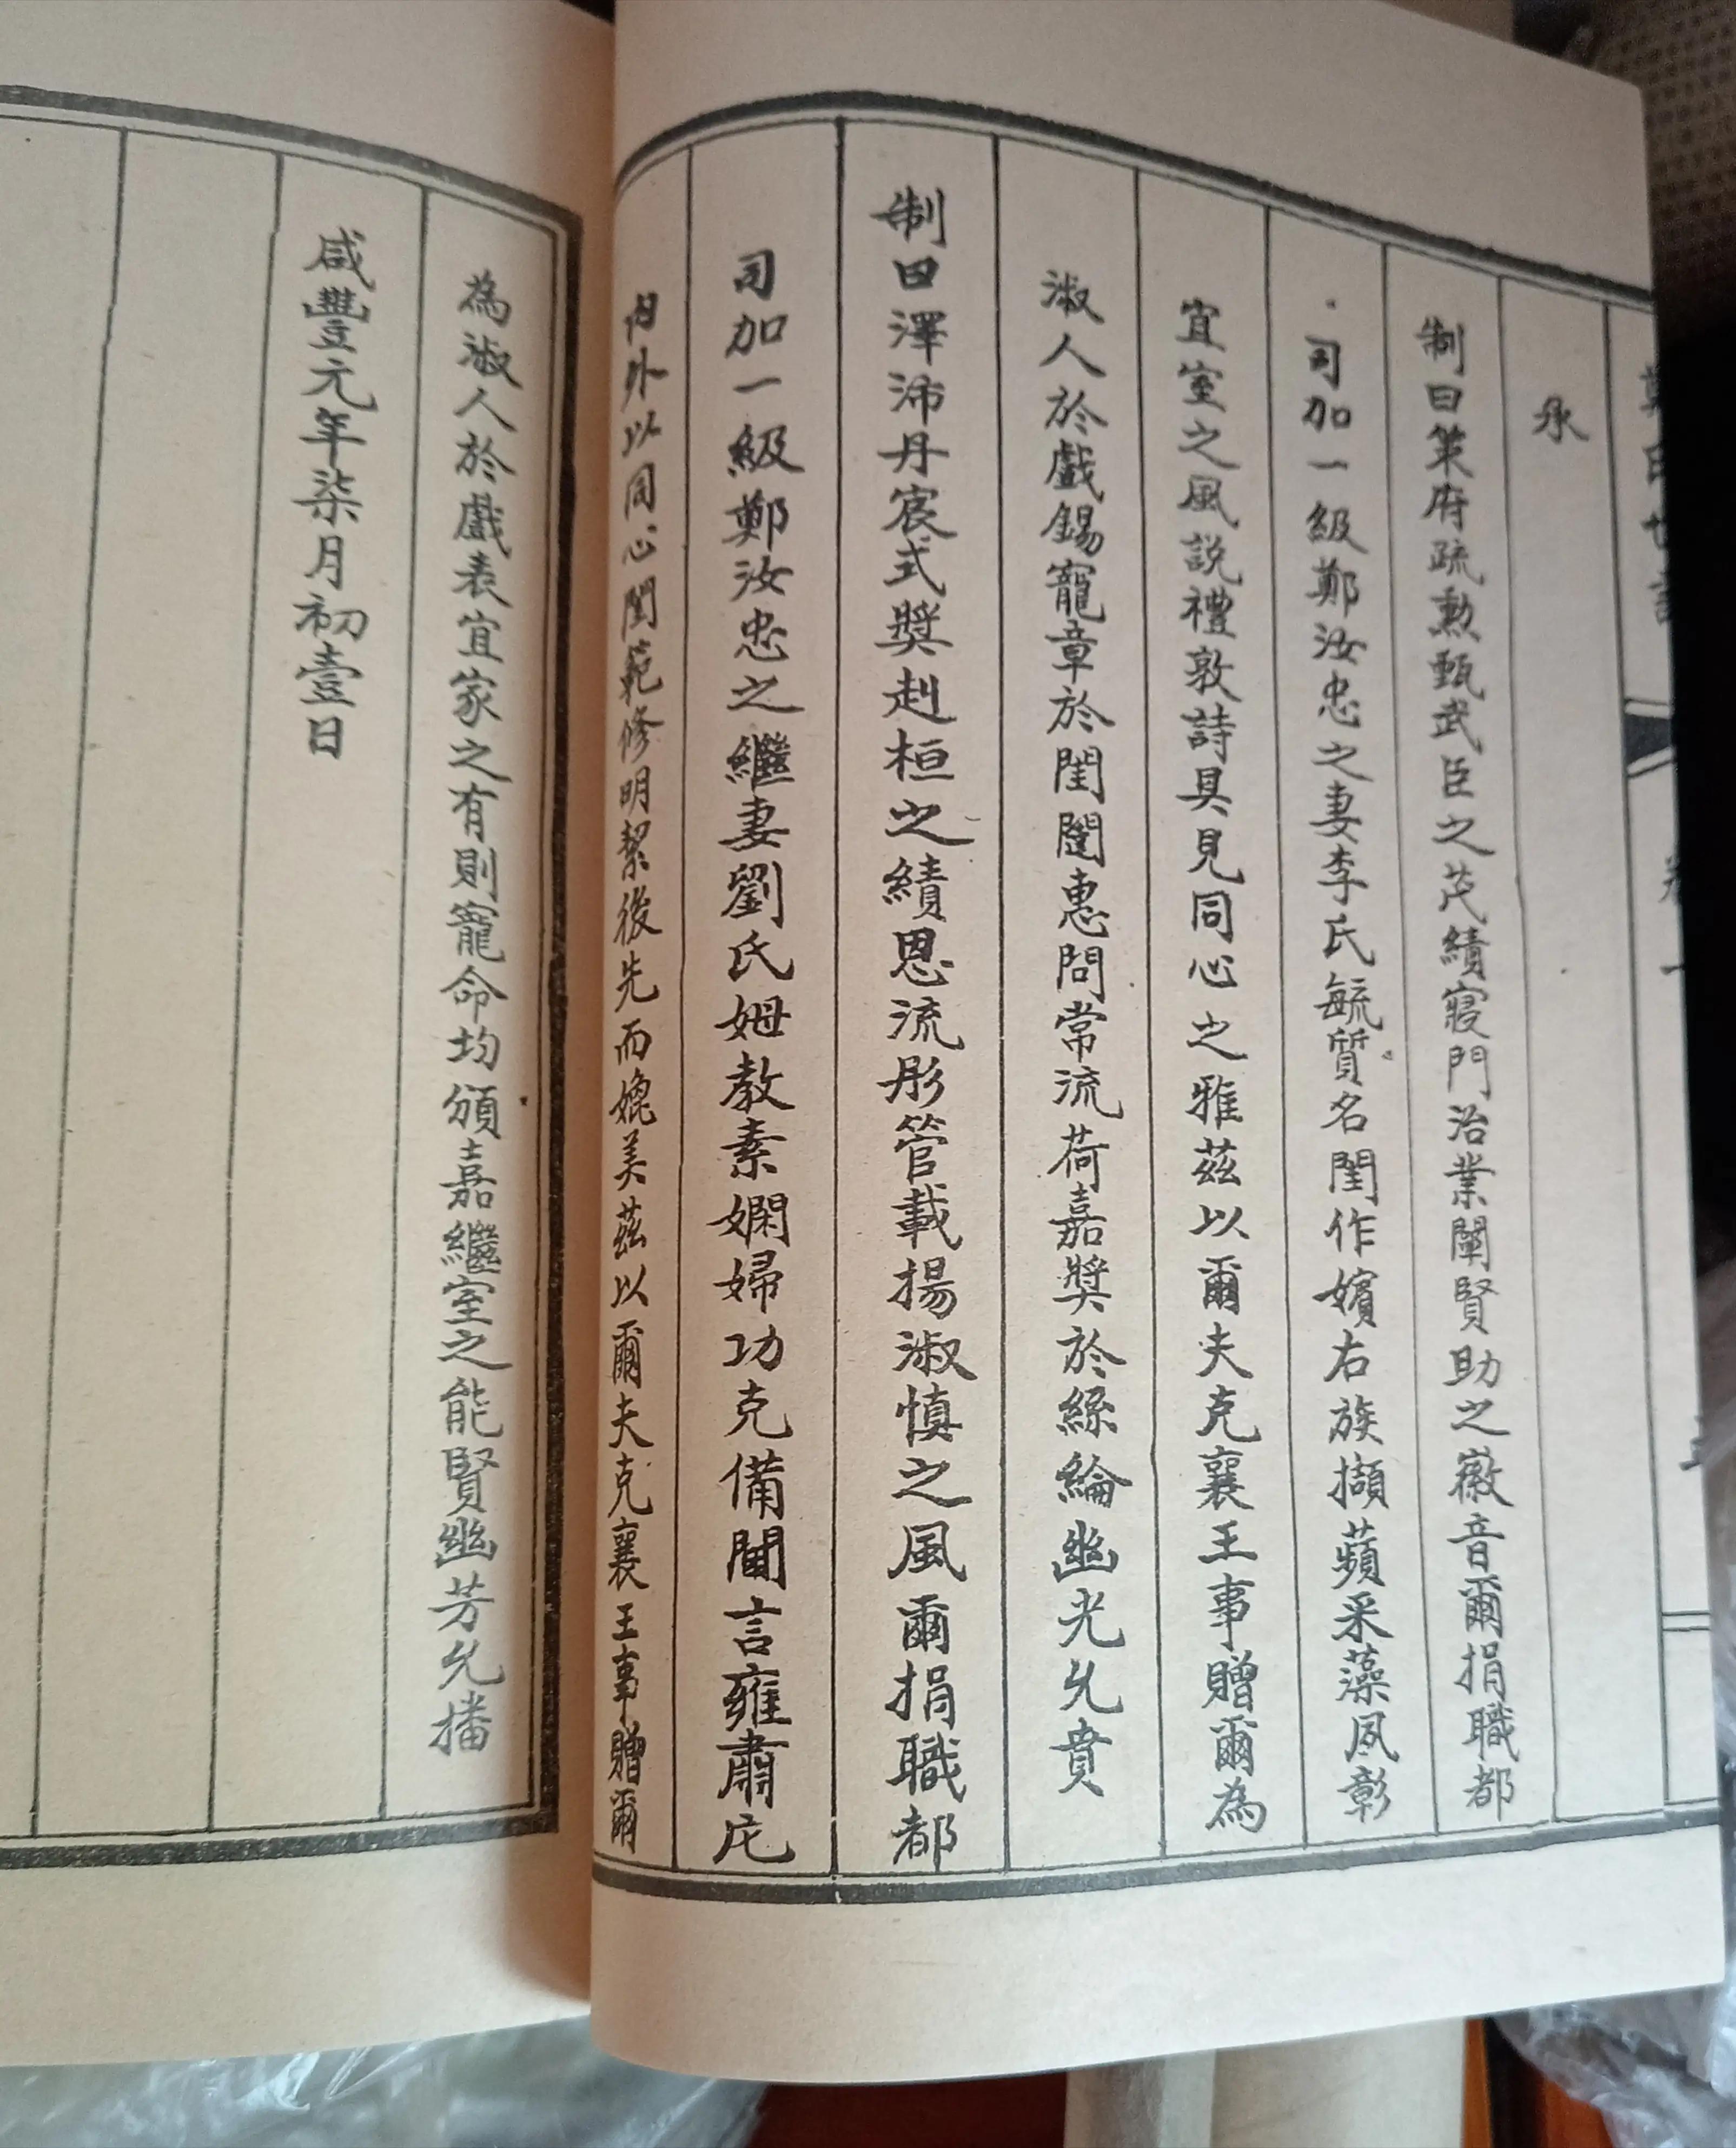 承
制曰策府疏勲甄武臣之茂績寢門治業闡賢助之徽音爾捐職都
司加一級鄭汝忠之妻李氏毓質名閨作嬪右族擷蘋采藻夙彰
宜室之風説禮敦詩具見同心之雅茲以爾夫克襄王事贈爾為
淑人於戲錫寵章於閨閫惠問常流荷嘉奬於絲綸幽光允賁
制曰澤沛丹宸式奬赳桓之績恩流彤管載揚淑慎之風爾捐職都
司加一級鄭汝忠之繼妻劉氏姆教素嫻婦功克備閫言雍肅庀
内外以同心閨範修明絜後先而媲美茲以爾夫克襄王事贈爾
為淑人於戲表宜家之有則寵命均頒嘉繼室之能賢幽芳允播
咸豐元年柒月初壹日